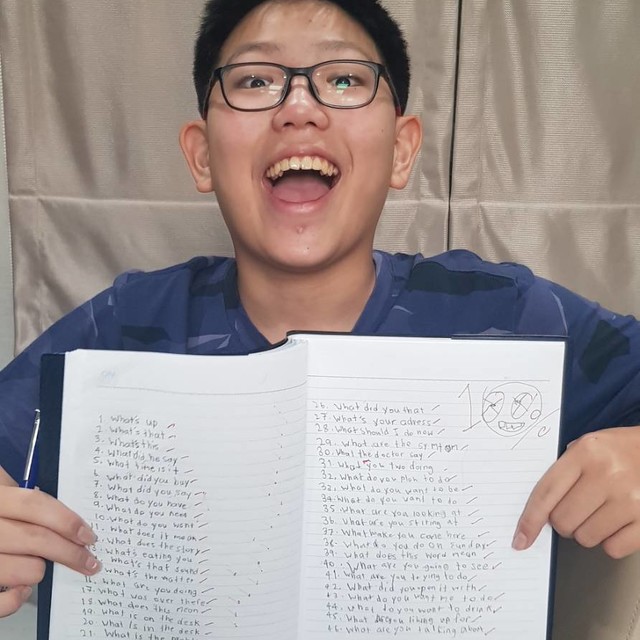 1. What's up
2. What's that
3. What's this
4. What did he say
5. What time is it
6. What did you buy
7. What did you say
8. What do you have
9. What do you need
10. What do you want
11. What does it mean
12. What does the story
What's eating you
What's that sound
What's the matter
What are you doing
17. What was over there
18. What does this mean
19. What is on the desk
20. What is in the desk
21. What is the
26. What did you that
27. What's your adress
28. What should I do now
29. What are the
30. What the doctor say
31. What you two doing
32. What do you plan to do
33. What do you want to be
34. What do you want to eat
35. What are you looking at
36. What are you stiring at
37. What make you come here
38. What do you do on Sunday
39. What does this word mean
40. What are you going to see
41. What are you trying to do
42. What did you open it with
43. What do you want me to do
44. What do you want to drink
45. What you liking up for
46. What are you talking about